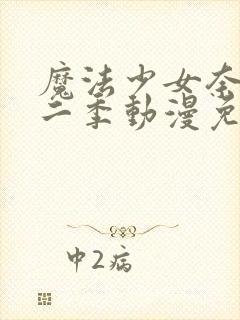 魔法少女奈
二季動漫免
中2病